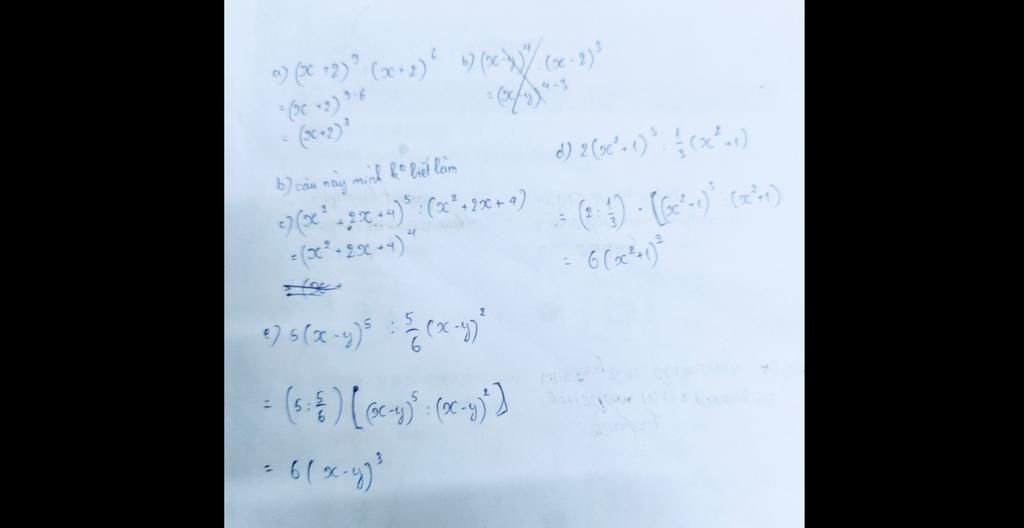 a) (x+2)⁹ : (x+2)⁶
= (x+2)⁹⁻⁶
= (x+2)³
b) (x-y)⁴ : (x-2)³
= (x-y)⁴⁻³
b) câu này mình kº biết làm
c) (x²+2x+4)⁵ : (x²+2x+4)
= (x²+2x+4)⁴
= (x
d) 2(x²+1)³ : 1/3 (x²+1)
= (2 : 1/3) · [(x²+1)³ : (x²+1)
= 6(x²+1)²
e) 5(x-y)⁵ : 5/6 (x-y)²
= (5 : 5/6) [(x-y)⁵ : (x-y)²]
= 6(x-y)³